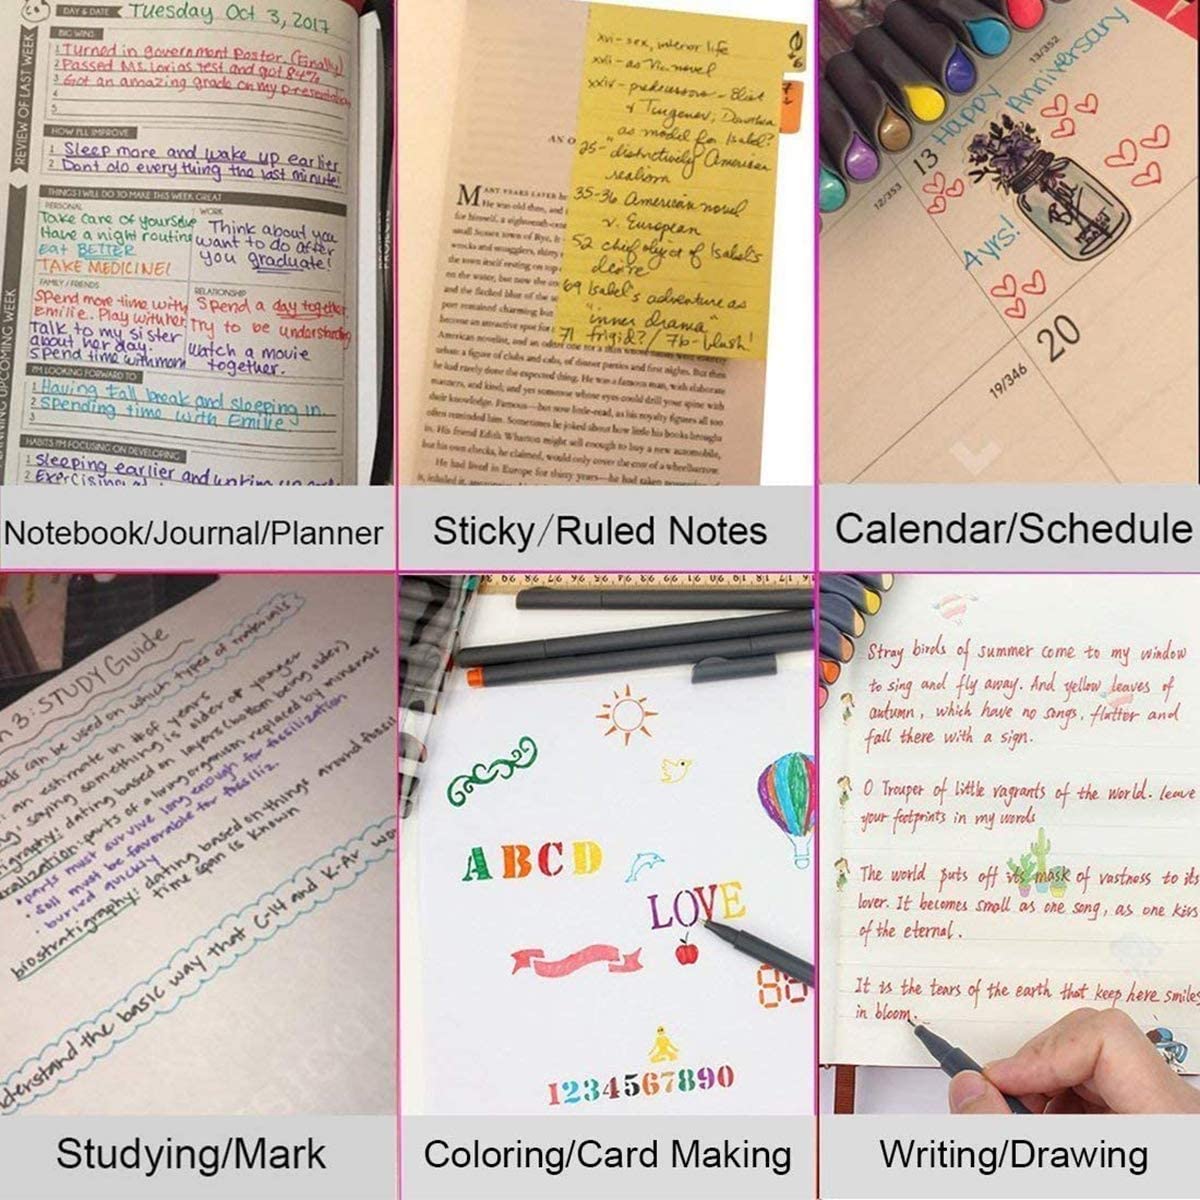 DAY & DATE Tuesday Oct 3, 2017
REVIEW OF LAST WEEK
BIG WINS
1 Turned in government poster (Finally)
2 Passed Ms. Lorias test and got 84%
3 Got an amazing grade on my presentation
4
5
HOW I'LL IMPROVE
1 Sleep more and wake up earlier
2 Dont do everything the last minute!
PLANNING UPCOMING WEEK
THINGS I WILL DO TO MAKE THIS WEEK GREAT
PERSONAL
Take care of yourselve
Have a night routine
Eat BETTER
TAKE MEDICINE!
WORK
Think about you
want to do after
you graduate!
FAMILY / FRIENDS
Spend more time with
Emilie. Play with her
Talk to my sister
about her day.
Spend time with mom
RELATIONSHIP
Spend a day together
Try to be understanding
Watch a movie
together.
I'M LOOKING FORWARD TO
1 Having fall break and sleeping in
2 Spending time with Emilie.
3
HABITS I'M FOCUSING ON DEVELOPING
1 Sleeping earlier and waking up
2 Exercising
Notebook/Journal/Planner
xvi - sex, interior life
xvii - as Vic. novel
xxiv - predecessors - Eliot
+ Turgenev; Daniel
as model for Isabel?
25 - distinctively American
realism
35-36 American novel
v. European
52 chief object of Isabel's
desire
69 Isabel's adventure as
"inner drama"
71 frigid? / 76 - blush!
AN O
MANY YEARS LATER he
He was old then, and
for himself, a eighteenth-
small Sussex town of Rye. It
wrecks and smugglers, shiny
the town itself resting on top
on the water, but now the
and the flocked blue of the
port remained charming but
become an attractive spot for
American novelist, and an
urban: a figure of clubs and cabs, of dinner parties and first nights. But then
he had rarely done the expected thing. He was a famous man, with elaborate
manners, and kind; and yet someone whose eyes could drill your spine with
their knowledge. Famous—but now little-read, as his royalty figures all too
often reminded him. Sometimes he joked about how little his books brought
in. His friend Edith Wharton might sell enough to buy a new automobile,
but his own checks, he claimed, would only cover the cost of a wheelbarrow.
He had lived in Europe for thirty years—he had taken
Sticky/Ruled Notes
13/352
12/353
13
Happy
Anniversary
Ayrs!
20
19/346
Calendar/Schedule
n 3: STUDY GUIDE
can be used on which types of materials
an estimate in # of years
saying something is older or younger
igraphy: dating based on layers (bottom being older)
ralization: parts of a living organism replaced by minerals
• parts must survive long enough for fossilization
• Soil must be favorable for fossiliz.
• buried quickly
biostratigraphy: dating based on things around fossil
time span is known
derstand the basic way that C-14 and K-Ar
Studying/Mark
ABCD
LOVE
88
1234567890
Coloring/Card Making
Stray birds of summer come to my window
to sing and fly away. And yellow leaves of
autumn, which have no songs, flutter and
fall there with a sign.
O Trouper of little vagrants of the world. leave
your footprints in my words
The world puts off its mask of vastness to its
lover. It becomes small as one song, as one kiss
of the eternal.
It is the tears of the earth that keep here smiles
in bloom.
Writing/Drawing